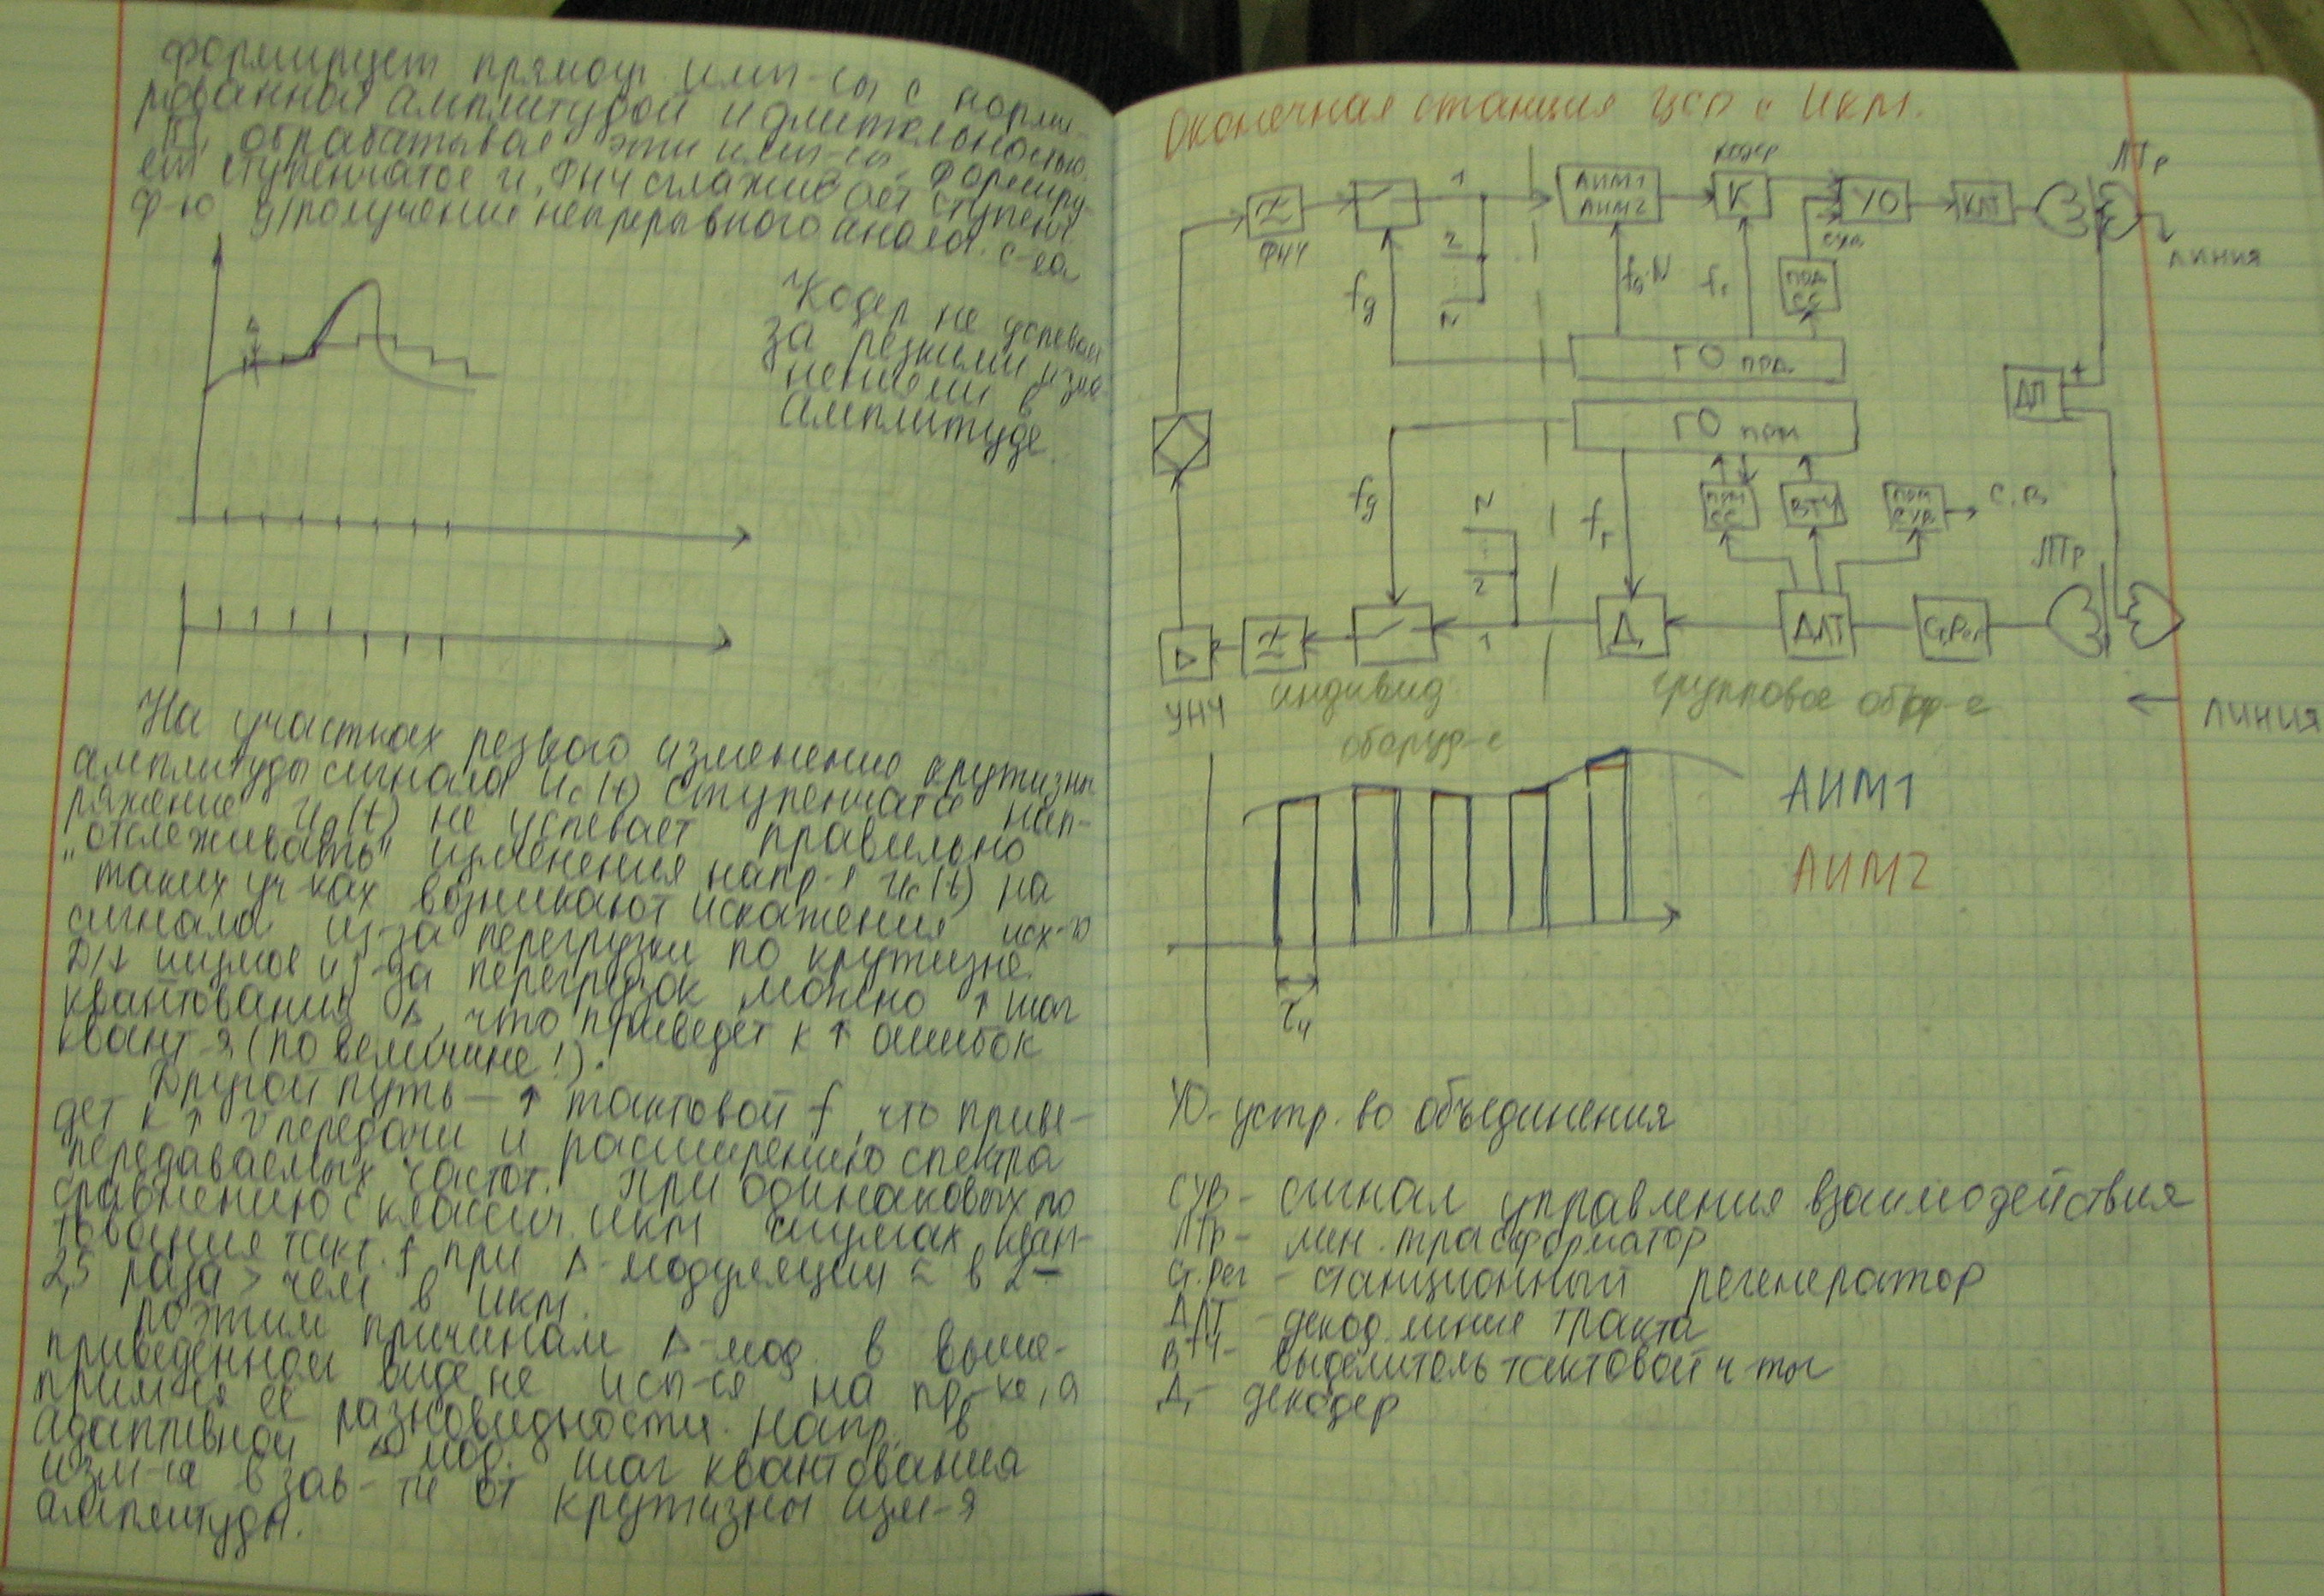 формирует прямоуг. имп-сы с норми-
рованной амплитудой и длительностью.
обрабатывае эти имп-сы, формиру-
ет ступенчатое и, ФНЧ сглаживает ступенч.
ф-ю д/получения непрерывного аналог. с-ла
Кодер не успевает
за резкими изме-
нениями в
амплитуде.
На участках резкого изменению крутизны
амплитуды сигнала Uc(t) ступенчатое нап-
ряжение (t) не успевает правильно
"отслеживать" изменения напр-я Uc(t) на
таких уч-ках возникают искажения исх-го
сигнала из-за перегрузки по крутизне.
Д/↓ шумов из-за перегрузок можно ↑ шаг
квантования Δ, что приведет к ↑ ошибок
квант-я (по величине!).
Другой путь — ↑ тактовой f, что приве-
дет к ↑ V передачи и расширению спектра
передаваемых частот. При одинаковых по
сравнению с классич. ИКМ шумах кван-
тования такт. f при Δ-модуляции ≈ в 2-
2,5 раза > чем в ИКМ.
По этим причинам Δ-мод. в выше-
приведенном виде не исп-ся на пр-ке, а
прим-ся её разновидности. Напр. в
адаптивной Δ мод. шаг квантования
изм-ся в зав-ти от крутизны изм-я
амплитуды.
Оконечная станция ЦСП с ИКМ.
кодер
ЛТр
1
АИМ1
АИМ2
К
УО
КЛТ
ФНЧ
2
сув
линия
fд
N
fд·N
fт
пер
СС
ГО прд.
ДП
+
ГО прм
fд
N
fт
прм
СС
ВТЧ
прм
СУВ
с.в.
2
ЛТр
1
Д
ДЛТ
Ст.Рег
УНЧ
индивид.
оборуд-е
групповое обор-е
линия
АИМ1
АИМ2
τи
УО - устр-во объединения
СУВ - сигнал управления взаимодействия
ЛТр - лин. трасформатор
Ст. рег - станционный регенератор
ДЛТ - декод. линие тракта
ВТЧ - выделитель тактовой ч-ты
Д - декодер